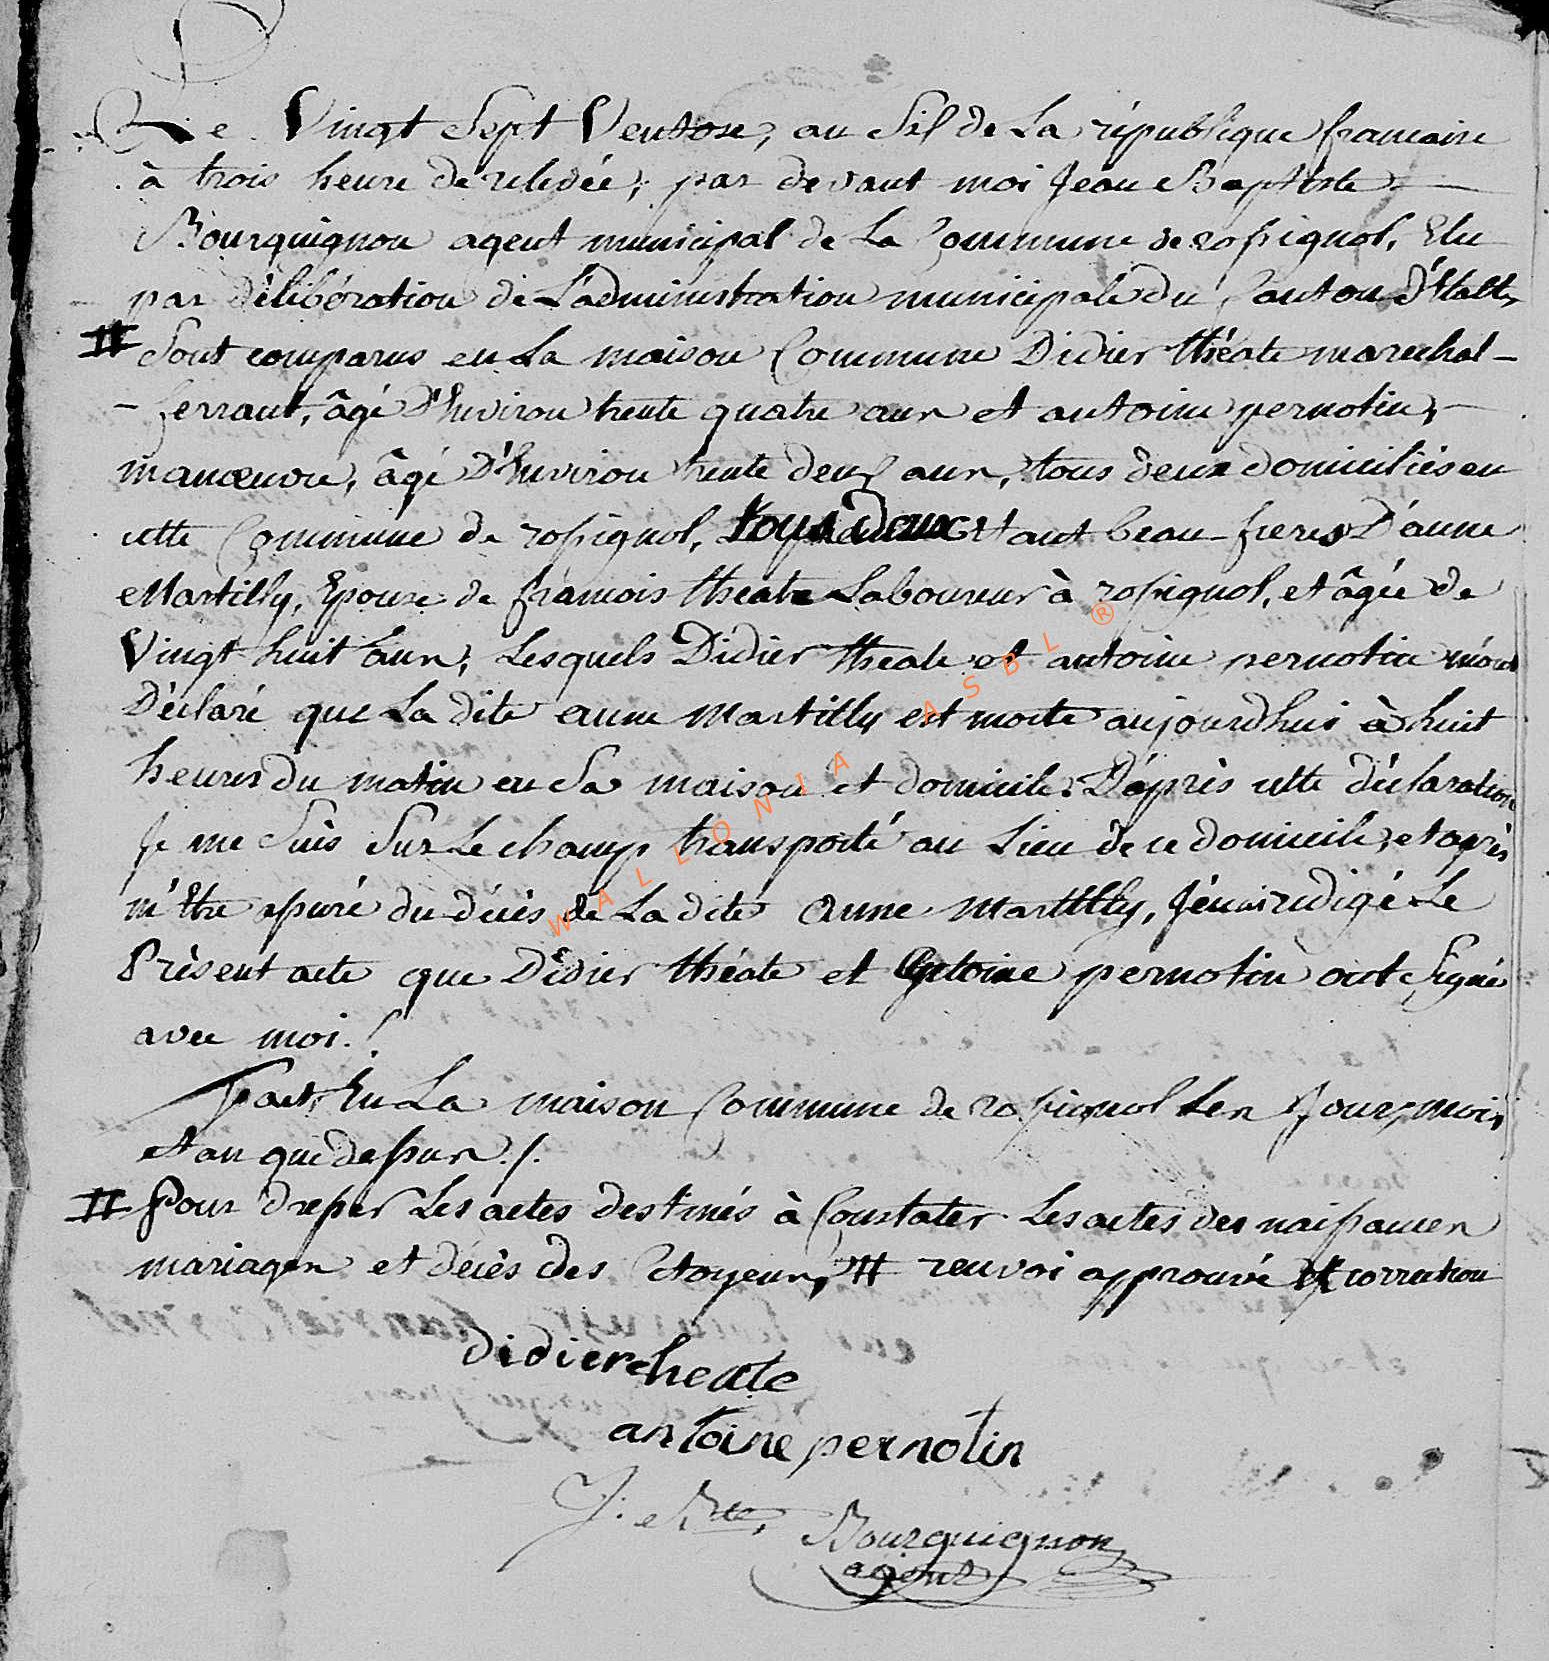 Le Vingt Sept Ventose, an Six de La république francaise
à trois heure de relevée, par devant moi Jean Baptiste
Bourguignon agent municipal de La Commune de rossignol, Elu
par déliberation de L'administration municipale du Canton d'Etalle,
# Sont comparus en La maison Commune Didier théate marechal-
- ferrant, âgé D'Environ trente quatre ans et antoine pernotin,
manoeuvre, âgé D'Environ trente deux ans, tous deux domiciliés en
cette Commune de rossignol, tous deux Etant beau-freres D'anne
Martilly, Epouse de francois theate Laboureur à rossignol, et âgée de
Vingt huit ans, Lesquels Didier theate et antoine pernotin m'ont
Déclaré que La dite anne Martilly est morte aujourdhui à huit
heures du matin en Sa maison et domicile. D'après cette déclaration
Je me Suis Sur Le champ transporté au Lieu de ce domicile, et après
m'Etre assuré du décès de La dite Anne Martilly, J'en ai redigé Le
Présent acte que Didier théate et Antoine pernotin ont Signé
avec moi./.
fait En La maison Commune de rossignol Les Jour, mois
et an que dessus./.
# Pour dresser Les actes destinés à Constater Les actes des naissances
mariages et décès des Citoyens, # renvoi approuvé et correction
didier theate
antoine pernotin
J. Bte. Bourguignon
agent
WALLONIA ASBL ®